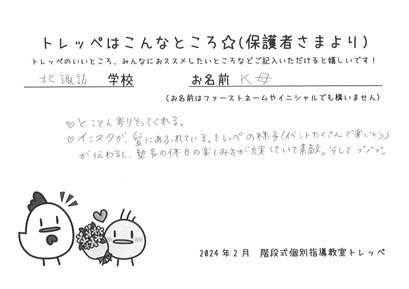 トレッペはこんなところ☆(保護者さまより)
トレッペのいいところ、みんなにおススメしたいところなどご記入いただけると嬉しいです!
北諏訪 学校 お名前 K母
(お名前はファーストネームやイニシャルでも構いません)
♡とことん寄りそってくれる。
♡インスタが、愛にあふれている。トレッペの様子(イベントたくさんで楽しそう)
が伝わるし、塾長の休日の楽しみ方が充実していて素敵。そして ププププ。
2024年2月 階段式個別指導教室トレッペ